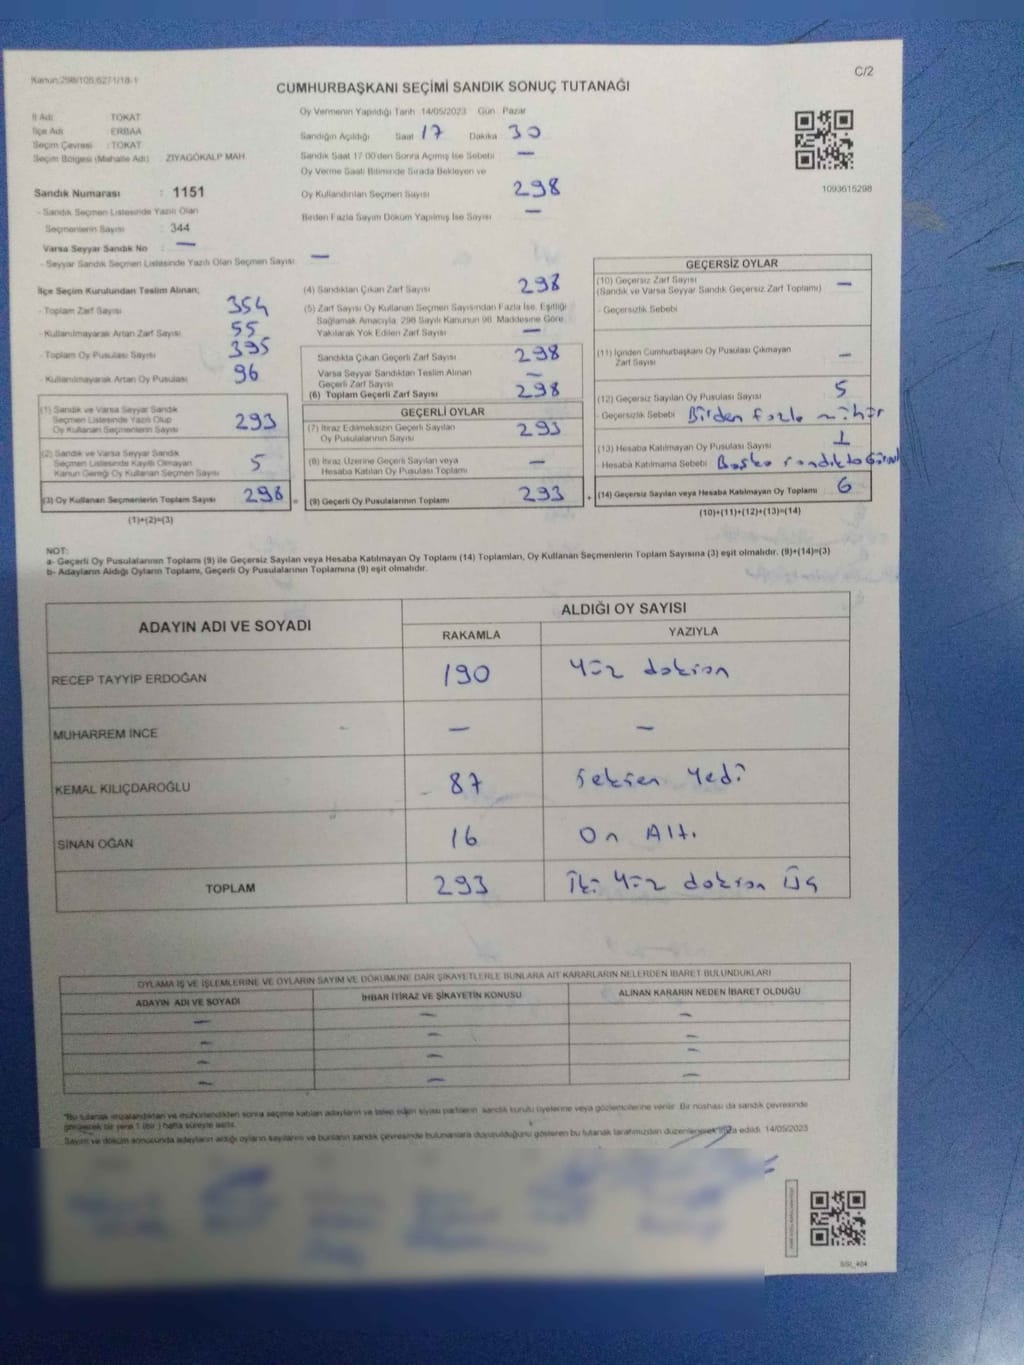 Kanun:298/105,6271/18-1
C/2
CUMHURBAŞKANI SEÇİMİ SANDIK SONUÇ TUTANAĞI
İl Adı : TOKAT
İlçe Adı : ERBAA
Seçim Çevresi : TOKAT
Seçim Bölgesi (Mahalle Adı) ZIYAGÖKALP MAH.
Sandık Numarası : 1151
- Sandık Seçmen Listesinde Yazılı Olan
Seçmenlerin Sayısı : 344
Varsa Seyyar Sandık No : —
- Seyyar Sandık Seçmen Listesinde Yazılı Olan Seçmen Sayısı: —
Oy Vermenin Yapıldığı Tarih 14/05/2023 Gün Pazar
Sandığın Açıldığı Saat 17 Dakika 30
Sandık Saat 17:00'den Sonra Açılmış İse Sebebi —
Oy Verme Saati Bitiminde Sırada Bekleyen ve
Oy Kullandırılan Seçmen Sayısı 298
Birden Fazla Sayım Döküm Yapılmış İse Sayısı —
1093615298
İlçe Seçim Kurulundan Teslim Alınan;
- Toplam Zarf Sayısı 354
- Kullanılmayarak Artan Zarf Sayısı 55
- Toplam Oy Pusulası Sayısı 395
- Kullanılmayarak Artan Oy Pusulası 96
(1) Sandık ve Varsa Seyyar Sandık
Seçmen Listesinde Yazılı Olup
Oy Kullanan Seçmenlerin Sayısı 293
(2) Sandık ve Varsa Seyyar Sandık
Seçmen Listesinde Kayıtlı Olmayan
Kanun Gereği Oy Kullanan Seçmen Sayısı 5
(3) Oy Kullanan Seçmenlerin Toplam Sayısı 298 =
(1)+(2)=(3)
(4) Sandıktan Çıkan Zarf Sayısı 298
(5) Zarf Sayısı Oy Kullanan Seçmen Sayısından Fazla İse, Eşitliği
Sağlamak Amacıyla, 298 Sayılı Kanunun 98. Maddesine Göre
Yakılarak Yok Edilen Zarf Sayısı —
Sandıkta Çıkan Geçerli Zarf Sayısı 298
Varsa Seyyar Sandıktan Teslim Alınan
Geçerli Zarf Sayısı —
(6) Toplam Geçerli Zarf Sayısı 298
GEÇERLİ OYLAR
(7) İtiraz Edilmeksizin Geçerli Sayılan
Oy Pusulalarının Sayısı 293
(8) İtiraz Üzerine Geçerli Sayılan veya
Hesaba Katılan Oy Pusulası Toplamı —
(9) Geçerli Oy Pusulalarının Toplamı 293 +
GEÇERSİZ OYLAR
(10) Geçersiz Zarf Sayısı
(Sandık ve Varsa Seyyar Sandık Geçersiz Zarf Toplamı) —
- Geçersizlik Sebebi
(11) İçinden Cumhurbaşkanı Oy Pusulası Çıkmayan
Zarf Sayısı —
(12) Geçersiz Sayılan Oy Pusulası Sayısı 5
- Geçersizlik Sebebi Birden fazla mühür
(13) Hesaba Katılmayan Oy Pusulası Sayısı 1
Hesaba Katılmama Sebebi Başka sandıkta
(14) Geçersiz Sayılan veya Hesaba Katılmayan Oy Toplamı 6
(10)+(11)+(12)+(13)=(14)
NOT:
a- Geçerli Oy Pusulalarının Toplamı (9) ile Geçersiz Sayılan veya Hesaba Katılmayan Oy Toplamı (14) Toplamları, Oy Kullanan Seçmenlerin Toplam Sayısına (3) eşit olmalıdır. (9)+(14)=(3)
b- Adayların Aldığı Oyların Toplamı, Geçerli Oy Pusulalarının Toplamına (9) eşit olmalıdır.
ADAYIN ADI VE SOYADI ALDIĞI OY SAYISI
RAKAMLA YAZIYLA
RECEP TAYYİP ERDOĞAN 190 Yüz doksan
MUHARREM İNCE — —
KEMAL KILIÇDAROĞLU 87 Seksen Yedi
SİNAN OĞAN 16 On Altı
TOPLAM 293 İki Yüz doksan Üç
OYLAMA İŞ VE İŞLEMLERİNE VE OYLARIN SAYIM VE DÖKÜMÜNE DAİR ŞİKAYETLERLE BUNLARA AİT KARARLARIN NELERDEN İBARET BULUNDUKLARI
ADAYIN ADI VE SOYADI İHBAR İTİRAZ VE ŞİKAYETİN KONUSU ALINAN KARARIN NEDEN İBARET OLDUĞU
— — —
— — —
— — —
— — —
*Bu tutanak imzalandıktan ve mühürlendikten sonra seçime katılan adayların ve talep eden siyasi partilerin sandık kurulu üyelerine veya gözlemcilerine verilir. Bir nüshası da sandık çevresinde
görülecek bir yere 1 (bir) hafta süreyle asılır.
Sayım ve döküm sonucunda adayların aldığı oyların sayılarını ve bunların sandık çevresinde bulunanlara duyurulduğunu gösteren bu tutanak tarafımızdan düzenlenerek imza edildi. 14/05/2023